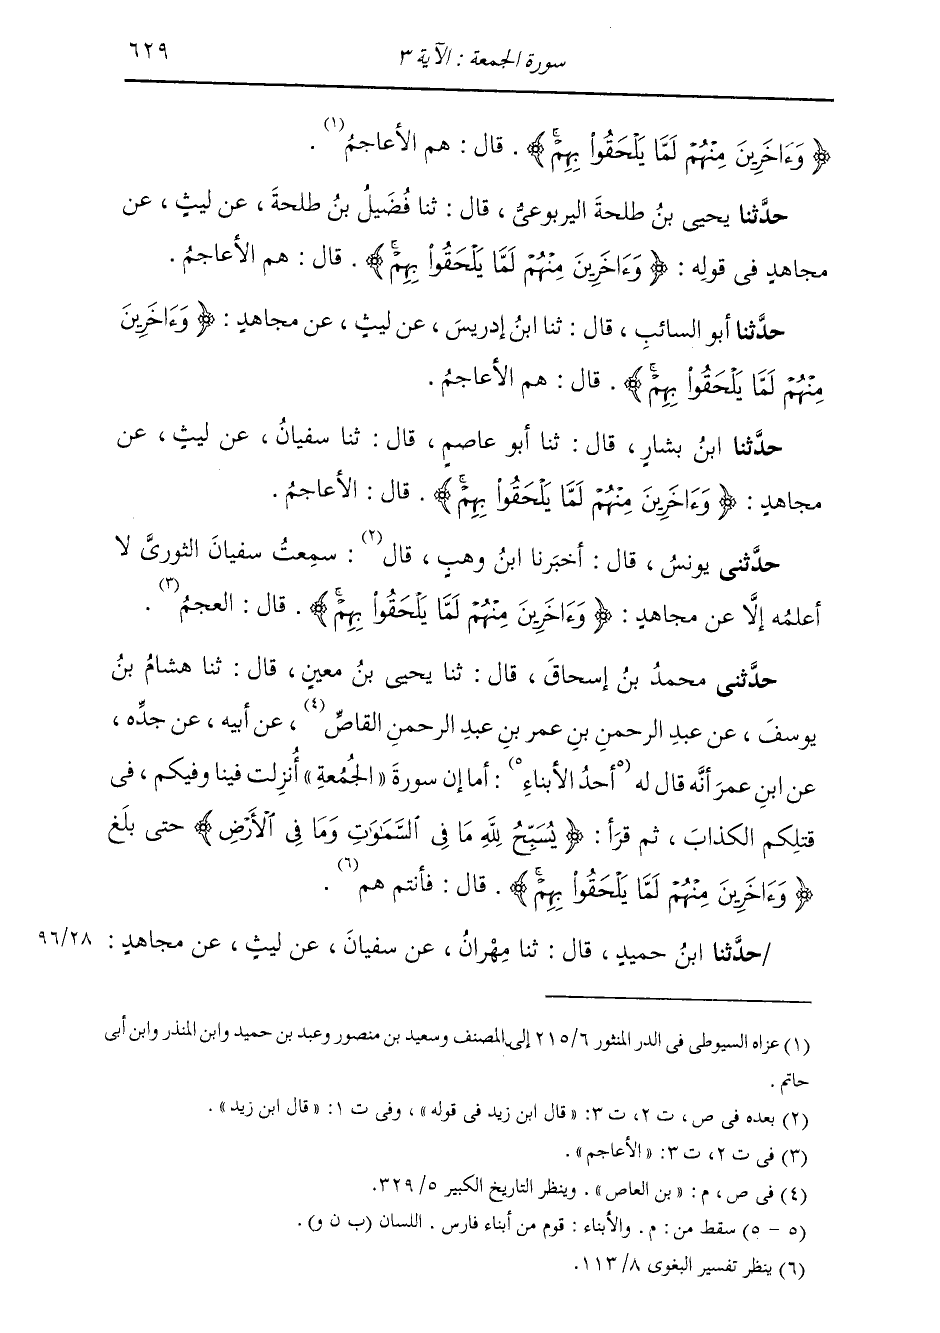 سورة الجمعة : الآية ٣
٦٢٩
﴿ وَءَاخَرِينَ مِنْهُمْ لَمَّا يَلْحَقُوا۟ بِهِمْ ۚ ﴾ . قال : هم الأعاجمُ(١) .
حدَّثنا يحيى بنُ طلحةَ اليربوعىُّ ، قال : ثنا فُضَيلُ بنُ طلحةَ ، عن ليثٍ ، عن
مجاهدٍ فى قولِه : ﴿ وَءَاخَرِينَ مِنْهُمْ لَمَّا يَلْحَقُوا۟ بِهِمْ ۚ ﴾ . قال : هم الأعاجمُ .
حدَّثنا أبو السائبِ ، قال : ثنا ابنُ إدريسَ ، عن ليثٍ ، عن مجاهدٍ : ﴿ وَءَاخَرِينَ
مِنْهُمْ لَمَّا يَلْحَقُوا۟ بِهِمْ ۚ ﴾ . قال : هم الأعاجمُ .
حدَّثنا ابنُ بشارٍ ، قال : ثنا أبو عاصمٍ ، قال : ثنا سفيانُ ، عن ليثٍ ، عن
مجاهدٍ : ﴿ وَءَاخَرِينَ مِنْهُمْ لَمَّا يَلْحَقُوا۟ بِهِمْ ۚ ﴾ . قال : الأعاجمُ .
حدَّثنى يونسُ ، قال : أخبَرنا ابنُ وهبٍ ، قال(٢) : سمِعتُ سفيانَ الثورىَّ لا
أعلمُه إلَّا عن مجاهدٍ : ﴿ وَءَاخَرِينَ مِنْهُمْ لَمَّا يَلْحَقُوا۟ بِهِمْ ۚ ﴾ . قال : العجمُ(٣) .
حدَّثنى محمدُ بنُ إسحاقَ ، قال : ثنا يحيى بنُ معينٍ ، قال : ثنا هشامُ بنُ
يوسفَ ، عن عبدِ الرحمنِ بنِ عمر بنِ عبدِ الرحمنِ القاصِّ(٤) ، عن أبيه ، عن جدِّه ،
عن ابنِ عمرَ أنَّه قال له (٥أحدُ الأبناءِ٥) : أما إن سورةَ « الجُمُعةِ » أُنزِلت فينا وفيكم ، فى
قتلِكم الكذابَ ، ثم قرَأ : ﴿ يُسَبِّحُ لِلَّهِ مَا فِى ٱلسَّمَـٰوَٰتِ وَمَا فِى ٱلْأَرْضِ ﴾ حتى بلَغ
﴿ وَءَاخَرِينَ مِنْهُمْ لَمَّا يَلْحَقُوا۟ بِهِمْ ۚ ﴾ . قال : فأنتم هم(٦) .
/حدَّثنا ابنُ حميدٍ ، قال : ثنا مِهْرانُ ، عن سفيانَ ، عن ليثٍ ، عن مجاهدٍ : ٩٦/٢٨
(١) عزاه السيوطى فى الدر المنثور ٢١٥/٦ إلى المصنف وسعيد بن منصور وعبد بن حميد وابن المنذر وابن أبى
حاتم .
(٢) بعده فى ص ، ت ٢، ت ٣: « قال ابن زيد فى قوله » ، وفى ت ١: « قال ابن زيد » .
(٣) فى ت ٢، ت ٣: « الأعاجم » .
(٤) فى ص ، م : « بن العاص » . وينظر التاريخ الكبير ٥/ ٣٢٩.
(٥ - ٥) سقط من : م . والأبناء : قوم من أبناء فارس . اللسان (ب ن و) .
(٦) ينظر تفسير البغوى ٨/ ١١٣.